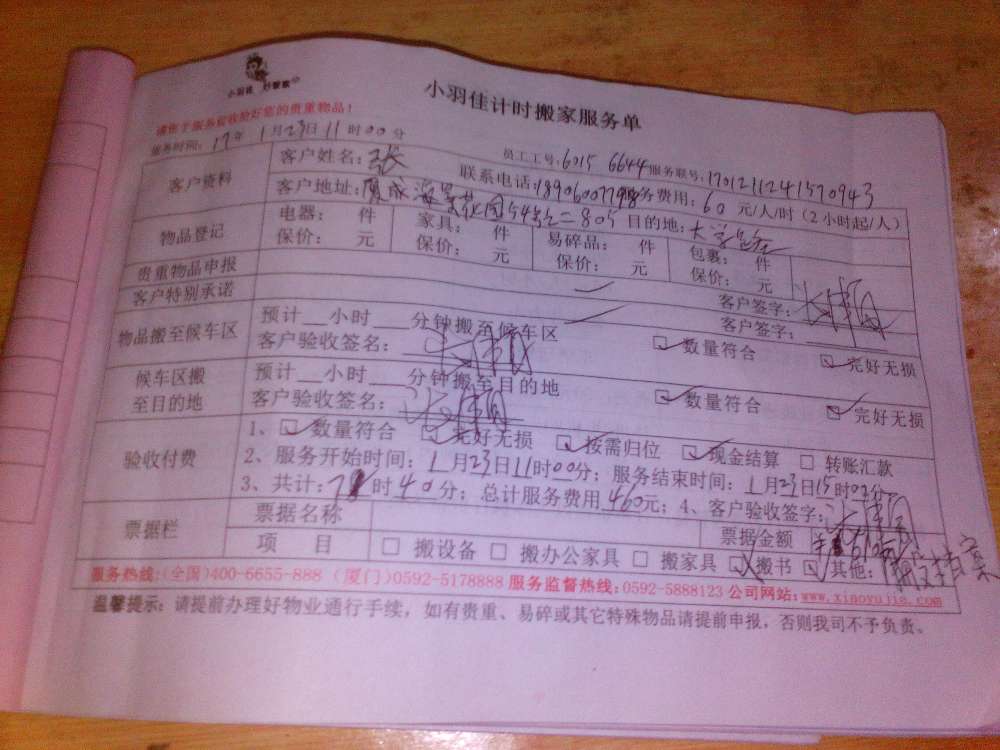 小羽佳 好管家
小羽佳计时搬家服务单
请您于服务前收捡好您的贵重物品!
服务时间: 17年 1月23日 11时00分
员工工号: 6015 6644 服务联号: 1701211241570943
客户资料 客户姓名: 张 联系电话: 服务费用: 60 元/人/时 (2小时起/人)
客户地址: 夏成海景花园54号之二805 目的地:
物品登记 电器: 件 家具: 件 易碎品: 件 包裹: 件
保价: 元 保价: 元 保价: 元 保价: 元
贵重物品申报 客户签字:
客户特别承诺 客户签字:
物品搬至候车区 预计__小时___分钟搬至候车区 ☑ 数量符合 ☑ 完好无损
客户验收签名:
候车区搬至目的地 预计__小时___分钟搬至目的地 ☑ 数量符合 ☑ 完好无损
客户验收签名:
验收付费 1、☑ 数量符合 ☑ 完好无损 ☑ 按需归位 ☑ 现金结算 □ 转账汇款
2、服务开始时间: 1月23日11时00分; 服务结束时间: 1月23日15时00分
3、共计: 时40分; 总计服务费用460元; 4、客户验收签字:
票据栏 票据名称 票据金额
项 目 □ 搬设备 □ 搬办公家具 □ 搬家具 ☑ 搬书 ☑ 其他:
服务热线:(全国)400-6655-888 (厦门)0592-5178888 服务监督热线: 0592-5888123 公司网站: www.xiaoyujia.com
温馨提示: 请提前办理好物业通行手续,如有贵重、易碎或其它特殊物品请提前申报,否则我司不予负责。